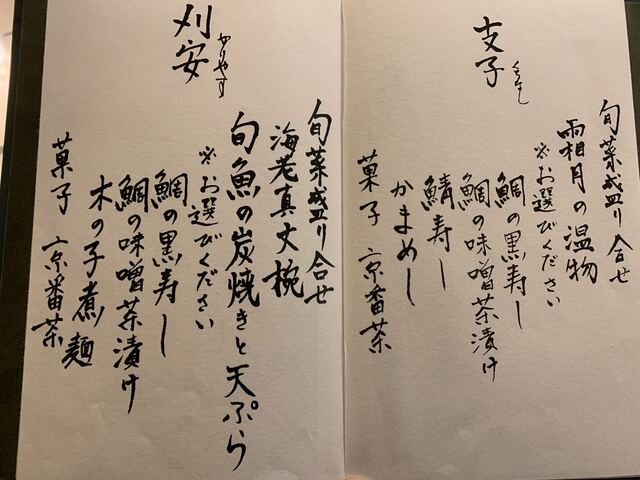 支子
くちなし
旬菜盛り合せ
霜月の温物
※お選びください
鯛の黒寿し
鯛の味噌茶漬け
鯖寿し
かまめし
菓子 京番茶
刈安
かりやす
旬菜盛り合せ
海老真丈椀
旬魚の炭焼きと天ぷら
※お選びください
鯛の黒寿し
鯛の味噌茶漬け
木の子煮麺
菓子 京番茶